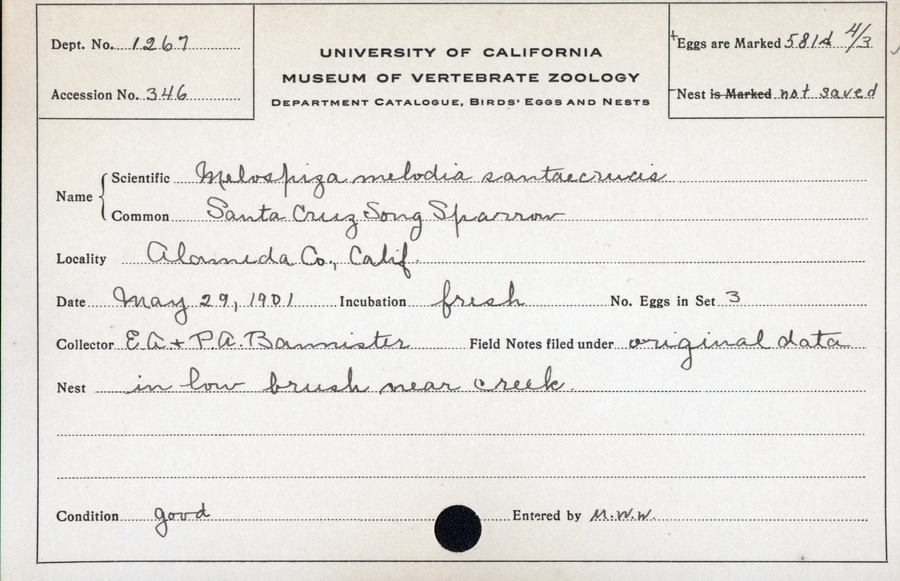 Dept. No. 1267
Accession No. 346
UNIVERSITY OF CALIFORNIA
MUSEUM OF VERTEBRATE ZOOLOGY
DEPARTMENT CATALOGUE, BIRDS' EGGS AND NESTS
Eggs are Marked 581d 4/3
Nest is Marked not saved
Name
Scientific Melospiza melodia santaecrucis
Common Santa Cruz Song Sparrow
Locality Alameda Co., Calif.
Date May 29, 1901 Incubation fresh No. Eggs in Set 3
Collector E.A. + P.A. Bannister Field Notes filed under original data
Nest in low brush near creek.
Condition good Entered by M.W.W.